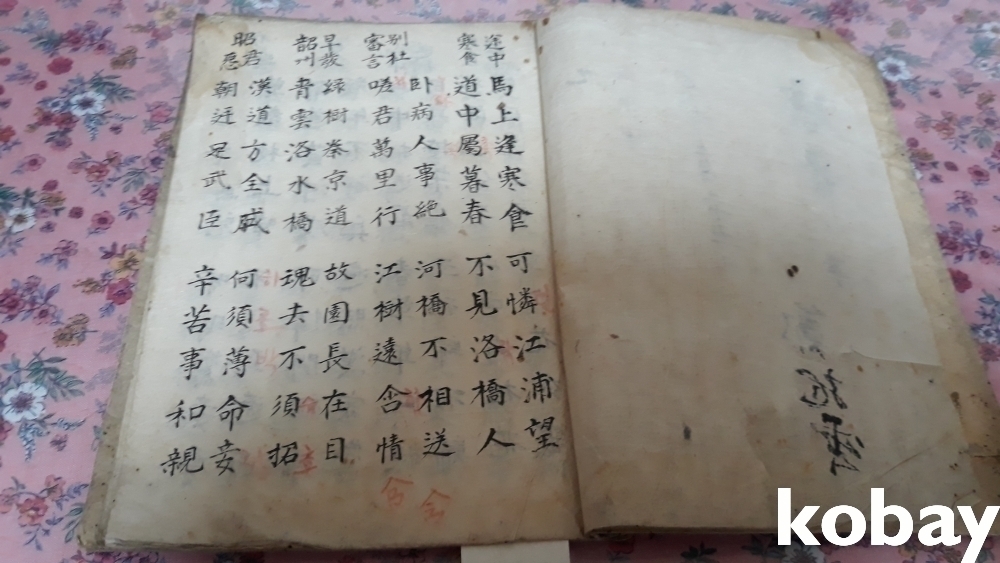 途中 馬上逢寒食 可憐江浦望
寒食 道中屬暮春 不見洛橋人
別杜 卧病人事絶 河橋不相送
審言 嗟君萬里行 江樹遠含情
早發 緑樹秦京道 故園長在目
韶州 青雲洛水橋 魂去不須招
昭君 漢道方全盛 何須薄命妾
怨 朝廷足武臣 辛苦事和親
kobay